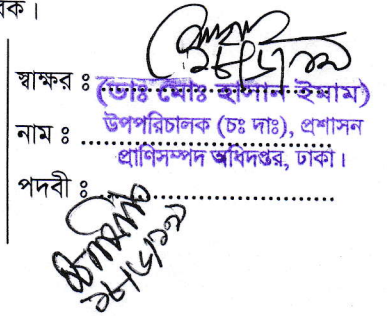 বক।
স্বাক্ষর ঃ
(ডাঃ মোঃ হাসান ইমাম)
নাম ঃ উপপরিচালক (চঃ দাঃ), প্রশাসন
প্রাণিসম্পদ অধিদপ্তর, ঢাকা।
পদবী ঃ